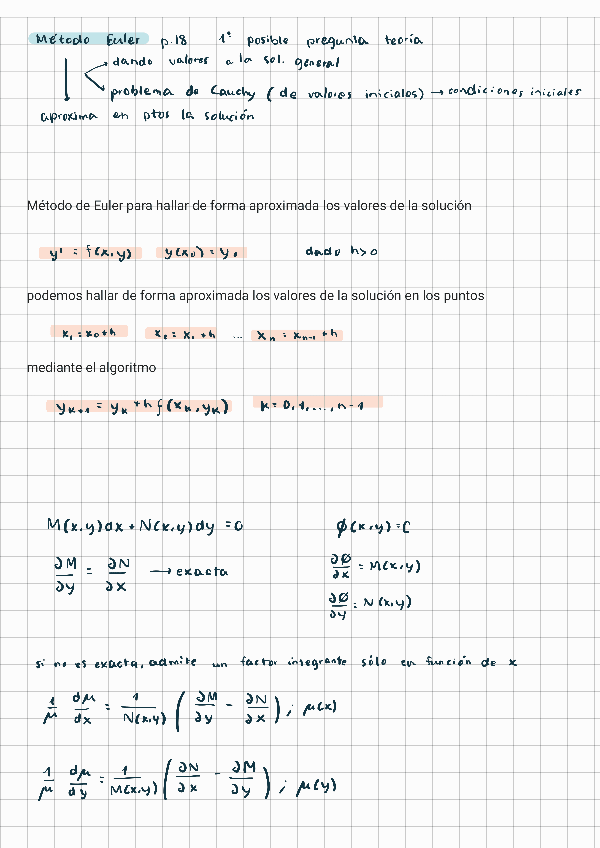 Método Euler p.18 1ª posible pregunta teoría
dando valores a la sol. general
problema de Cauchy (de valores iniciales) → condiciones iniciales
aproxima en ptos la solución
Método de Euler para hallar de forma aproximada los valores de la solución
y' = f(x,y) y(x₀) = y₀ dado h>0
podemos hallar de forma aproximada los valores de la solución en los puntos
x₁ = x₀+h x₂ = x₁+h ... xₙ = xₙ₋₁+h
mediante el algoritmo
yₖ₊₁ = yₖ + h f(xₖ,yₖ) k=0,1,...,n-1
M(x,y)dx + N(x,y)dy = 0 φ(x,y)=C
∂M/∂y = ∂N/∂x → exacta ∂Ø/∂x = M(x,y)
∂Ø/∂y = N(x,y)
si no es exacta, admite un factor integrante sólo en función de x
1/μ dμ/dx = 1/N(x,y) (∂M/∂y - ∂N/∂x) ; μ(x)
1/μ dμ/dy = 1/M(x,y) (∂N/∂x - ∂M/∂y) ; μ(y)